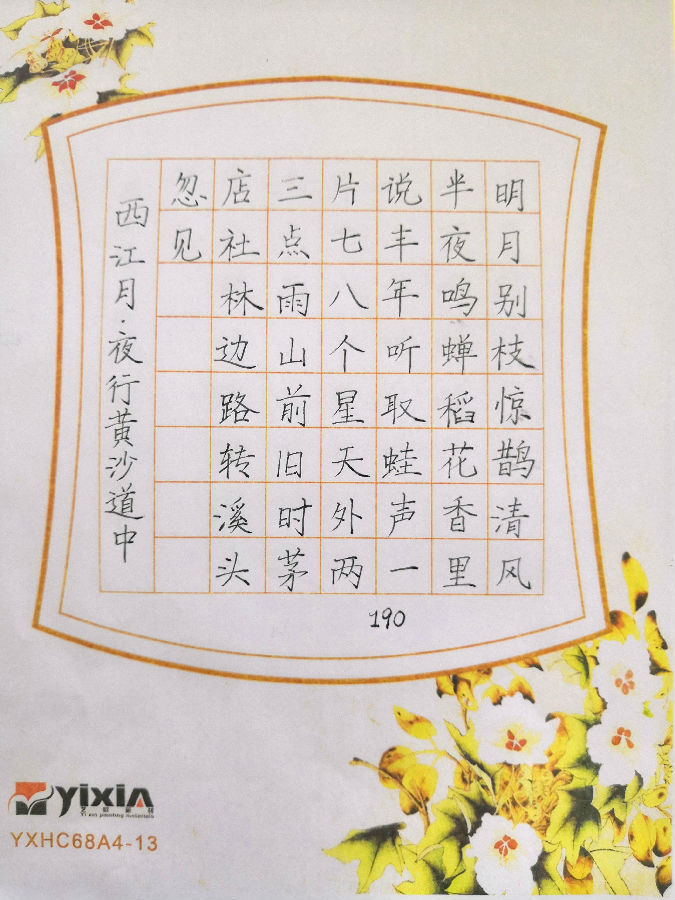 明月别枝惊鹊清风
半夜鸣蝉稻花香里
说丰年听取蛙声一
片七八个星天外两
三点雨山前旧时茅
店社林边路转溪头
忽见
西江月·夜行黄沙道中
190
yixin
Yi xin painting materials
YXHC68A4-13